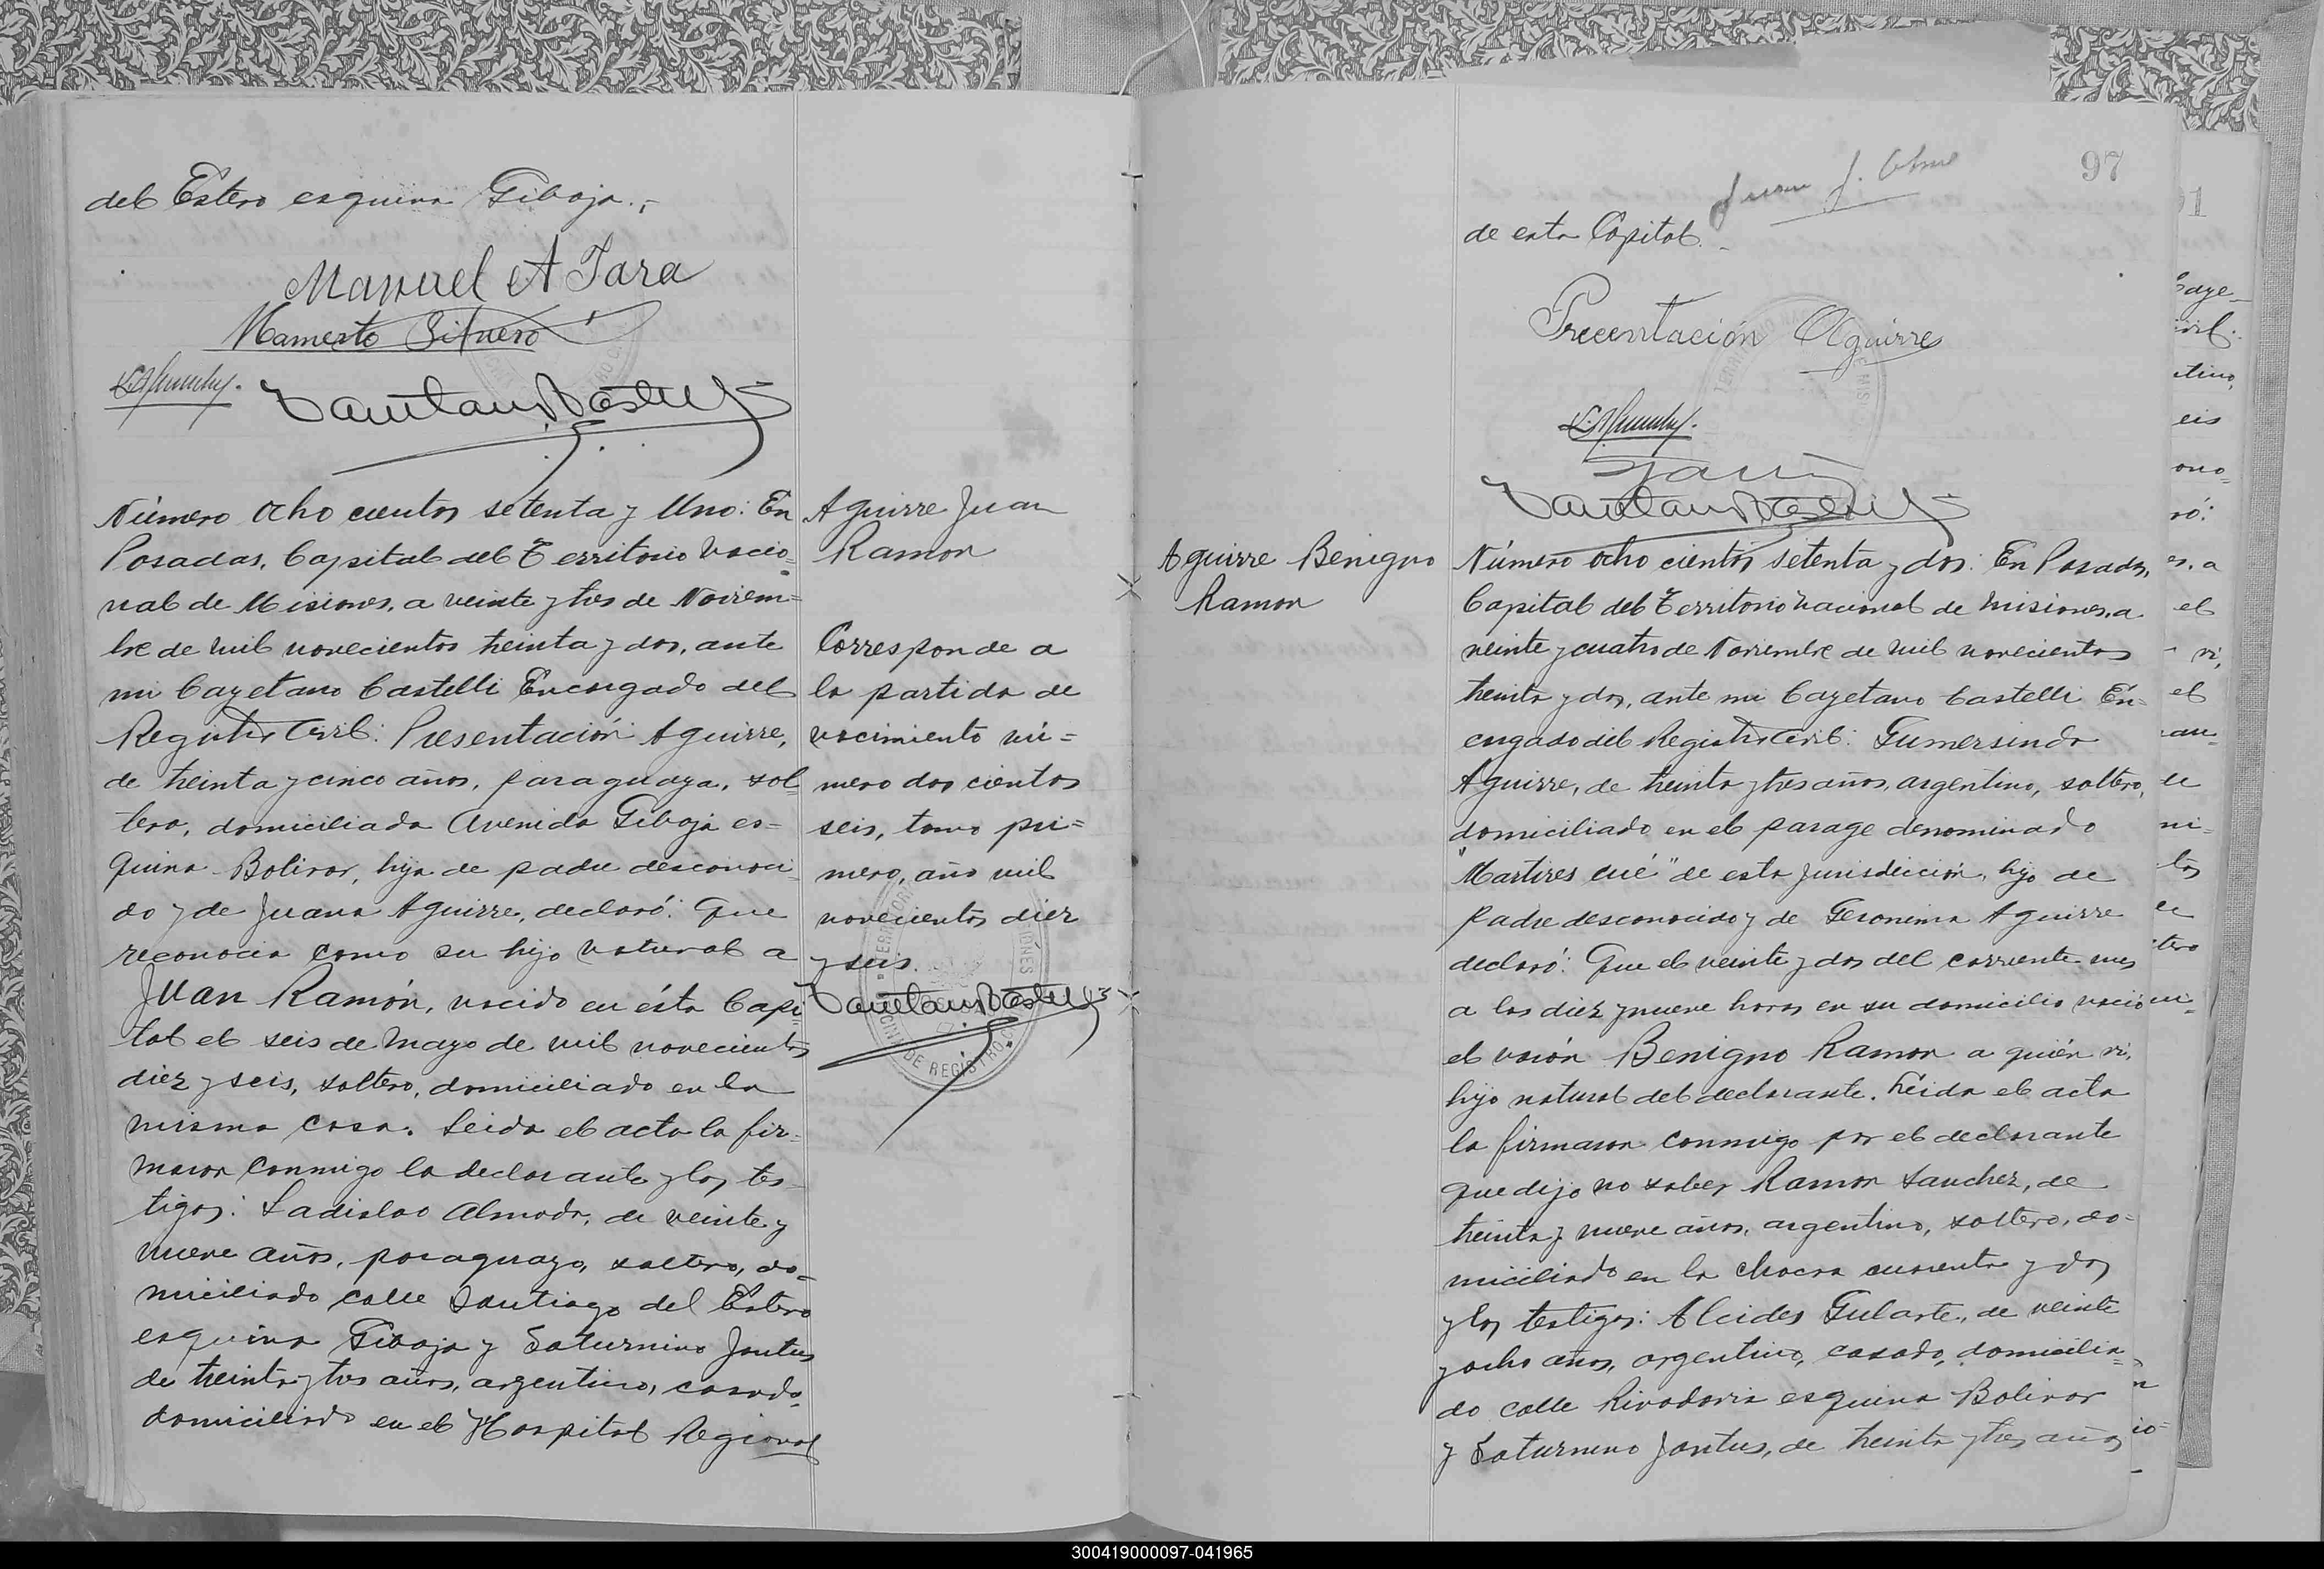 del Estero esquina Giboja.,
Manuel A Jara
Mamerto
Número ocho cientos setenta y Uno: En
Posadas, Capital del Territorio Nacio=
nal de Misiones, a veinte y tres de Noviem=
bre de mil novecientos treinta y dos, ante
mi Cayetano Castelli Encargado del
Registro Civil: Presentación Aguirre,
de treinta y cinco años, paraguaya, sol
tera, domiciliada Avenida Giboja es=
quina Bolivar, hija de padre desconoci
do y de Juana Aguirre, declaró: Que
reconocia como su hijo natural a
Juan Ramón, nacido en ésta Capi
tal el seis de Mayo de mil novecientos
diez y seis, soltero, domiciliado en la
misma casa. Leida el acta la fir=
maron conmigo la declarante y los tes
tigos: Ladislao Almada, de veinte y
nueve años, paraguayo, soltero, do=
miciliado calle Santiago del Estero
esquina Giboja y Saturnino Jantus
de treinta y tres años, argentino, casado,
domiciliado en el Hospital Regional
Aguirre Juan
Ramon
Corresponde a
la partida de
nacimiento nú=
mero dos cientos
seis, tomo pri=
mero, año mil
novecientos diez
y seis.
97
Juan J.
de esta Capital.
Precentación Aguirre
Aguirre Benigno
Ramon
Número ocho cientos setenta y dos: En Posadas,
Capital del Territorio Nacional de Misiones, a
veinte y cuatro de Noviembre de mil novecientos
treinta y dos, ante mi Cayetano Castelli En=
cargado del Registro Civil: Gumersindo
Aguirre, de treinta y tres años, argentino, soltero,
domiciliado en el parage denominado
"Martires cué" de esta jurisdicción, hijo de
padre desconocido y de Geronima Aguirre
declaró: Que el veinte y dos del corriente mes
a las diez y nueve horas en su domicilio nació
el varón Benigno Ramon a quién vi,
hijo natural del declarante. Leida el acta
la firmaron conmigo por el declarante
que dijo no saber Ramon Sanchez, de
treinta y nueve años, argentino, soltero, do=
miciliado en la chacra cuarenta y dos
y los testigos: Alcides Gularte, de veinte
y ocho años, argentino, casado, domicilia=
do calle Rivadavia esquina Bolivar
y Saturnino Jantus, de treinta y tres años
300419000097-041965